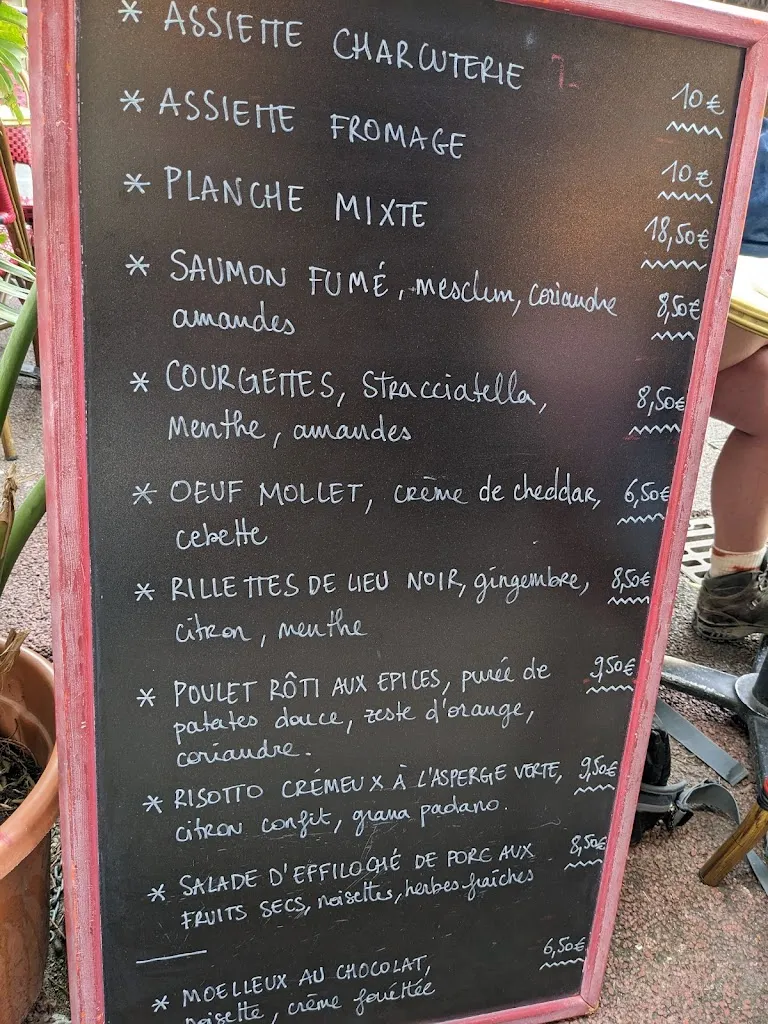 * ASSIETTE CHARCUTERIE 10€
* ASSIETTE FROMAGE 10€
* PLANCHE MIXTE 18,50€
* SAUMON FUMÉ, mesclun, coriandre 8,50€
amandes
* COURGETTES, Stracciatella, 8,50€
menthe, amandes
* OEUF MOLLET, crème de cheddar, 6,50€
cebette
* RILLETTES DE LIEU NOIR, gingembre, 8,50€
citron, menthe
* POULET RÔTI AUX EPICES, purée de 9,50€
patates douce, zeste d'orange,
coriandre.
* RISOTTO CRÉMEUX À L'ASPERGE VERTE, 9,50€
citron confit, grana padano.
* SALADE D'EFFILOCHÉ DE PORC AUX 8,50€
FRUITS SECS, noisettes, herbes fraîches
* MOELLEUX AU CHOCOLAT, 6,50€
noisette, crème fouéttée